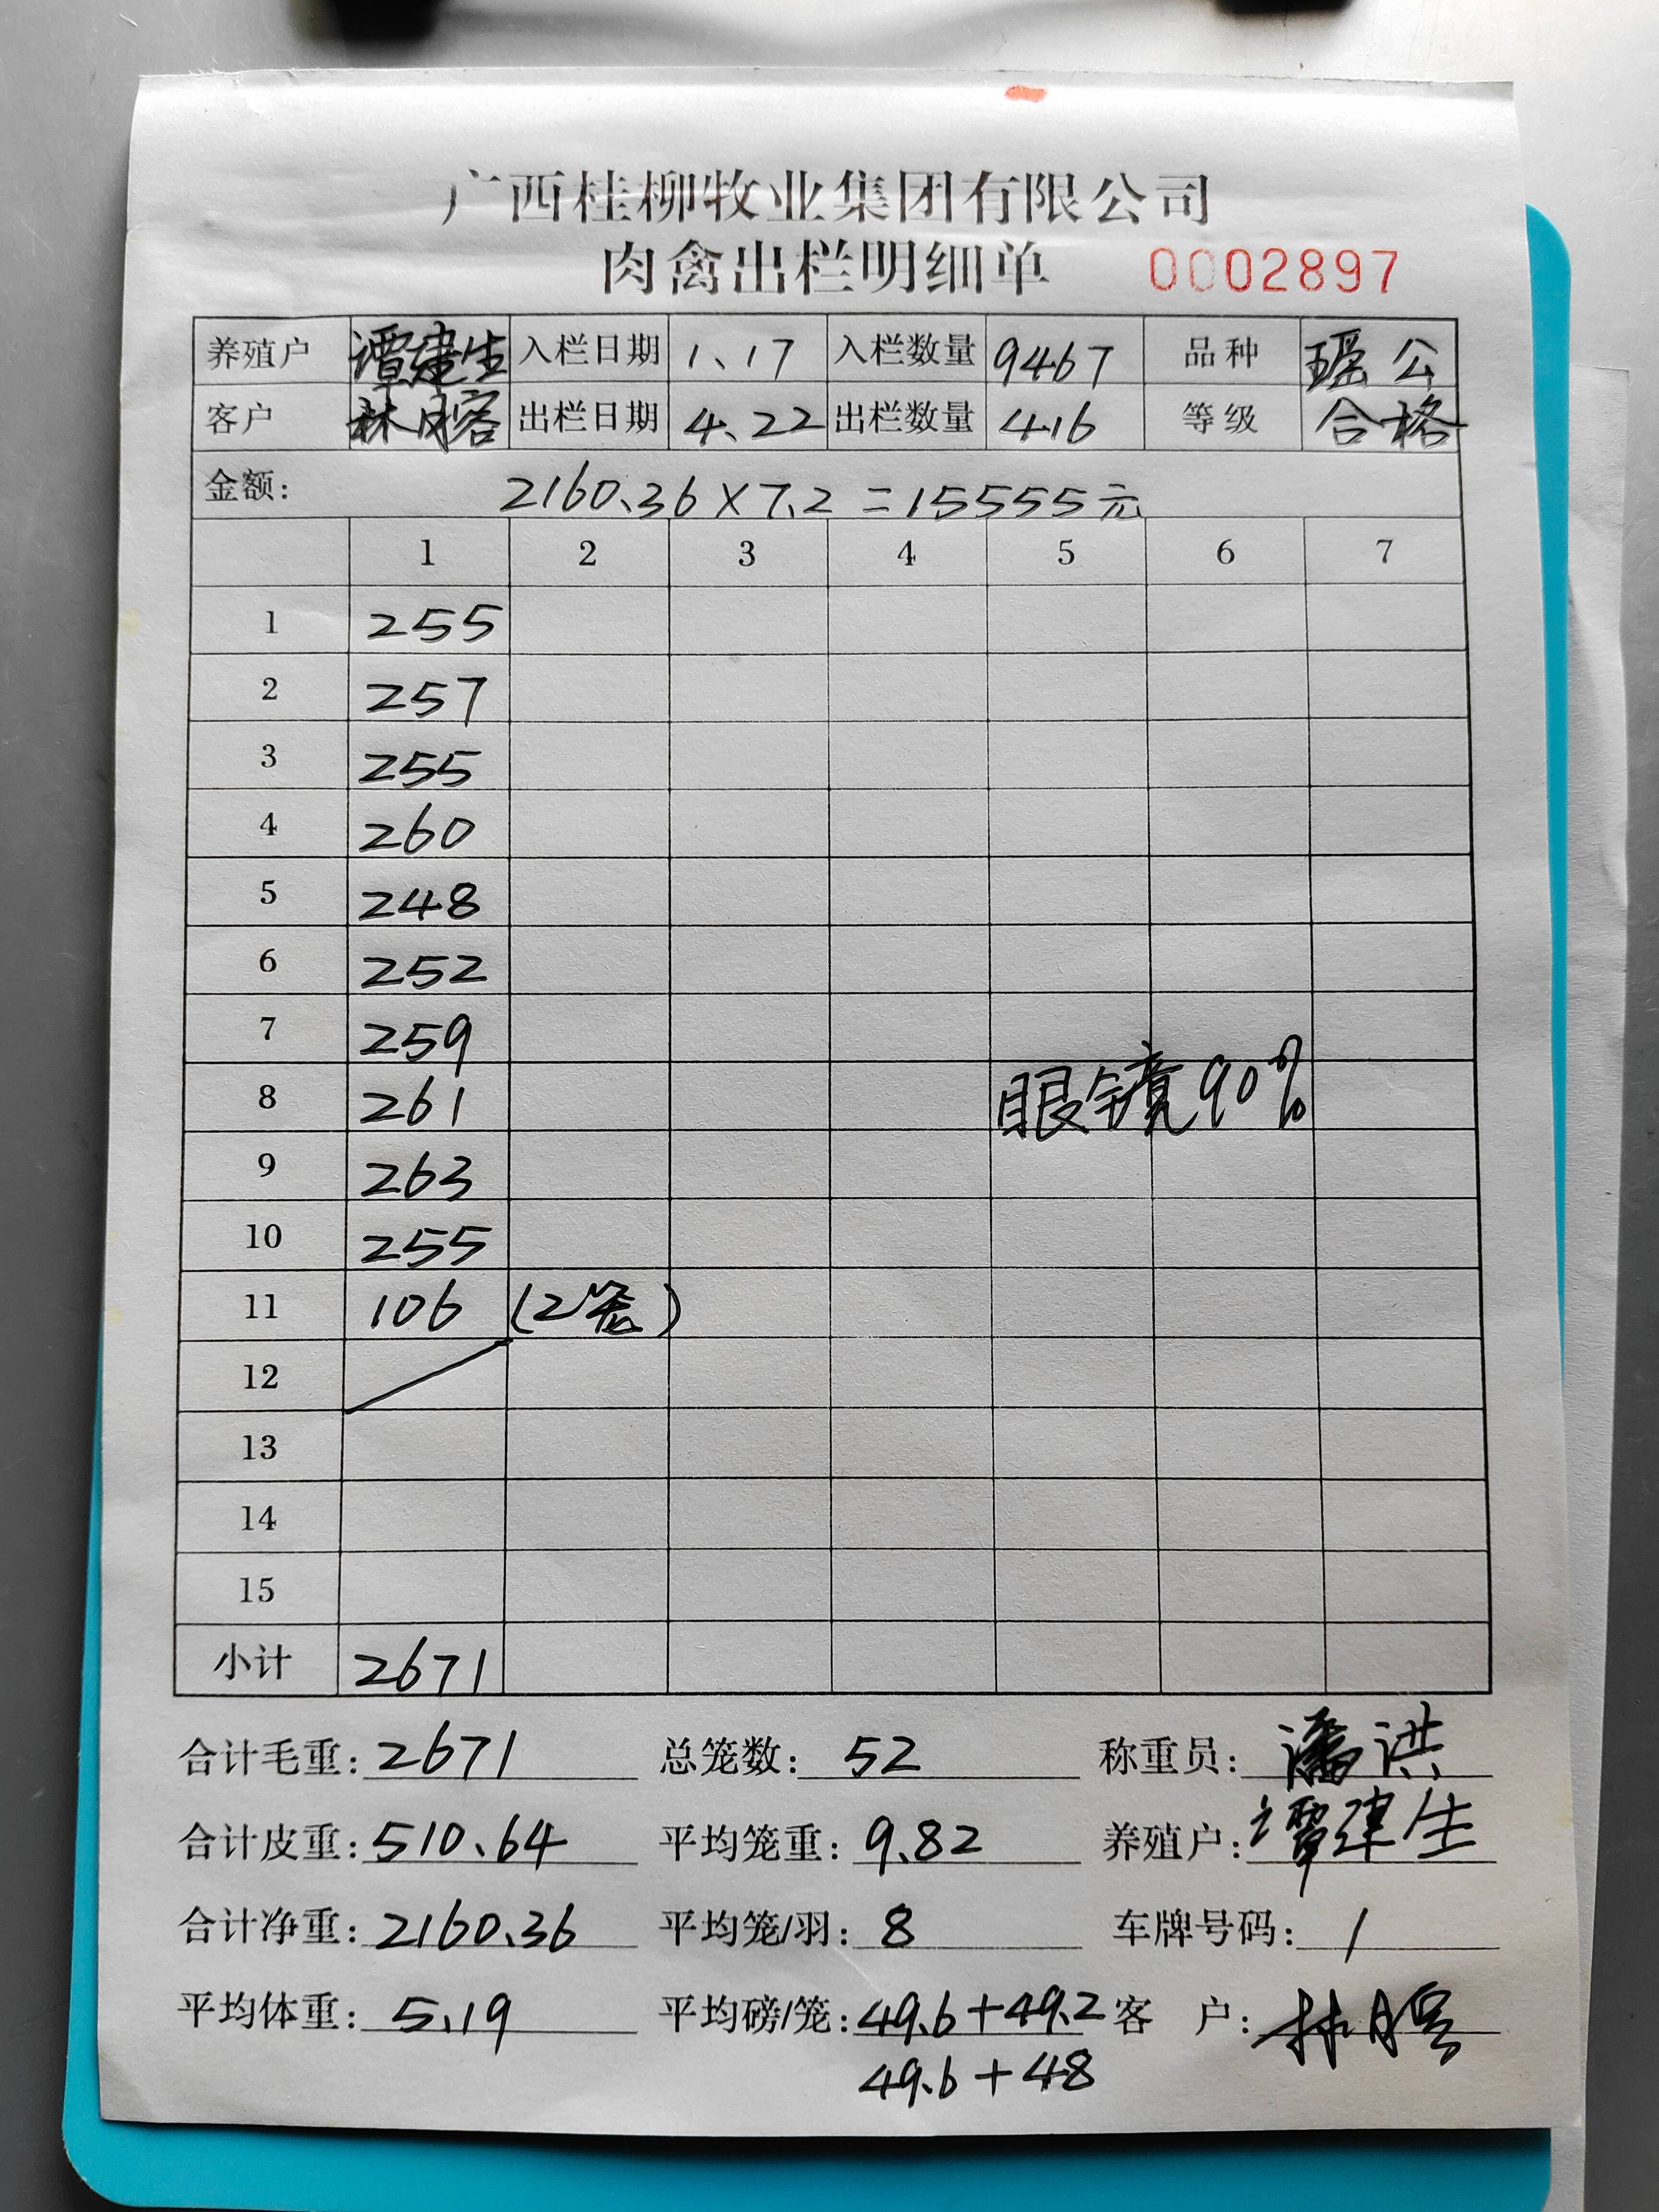 广西桂柳牧业集团有限公司
肉禽出栏明细单 0002897
养殖户 谭建生 入栏日期 1、17 入栏数量 9467 品种 瑶公
客户 林月容 出栏日期 4、22 出栏数量 416 等级 合格
金额: 2160.36×7.2=15555元
1 2 3 4 5 6 7
1 255
2 257
3 255
4 260
5 248
6 252
7 259
8 261 眼镜90%
9 263
10 255
11 106 (2笼)
12
13
14
15
小计 2671
合计毛重: 2671 总笼数: 52 称重员: 潘洪
合计皮重: 510.64 平均笼重: 9.82 养殖户: 谭建生
合计净重: 2160.36 平均笼/羽: 8 车牌号码: 1
平均体重: 5.19 平均磅/笼: 49.6+49.2 客 户: 林月容
49.6+48